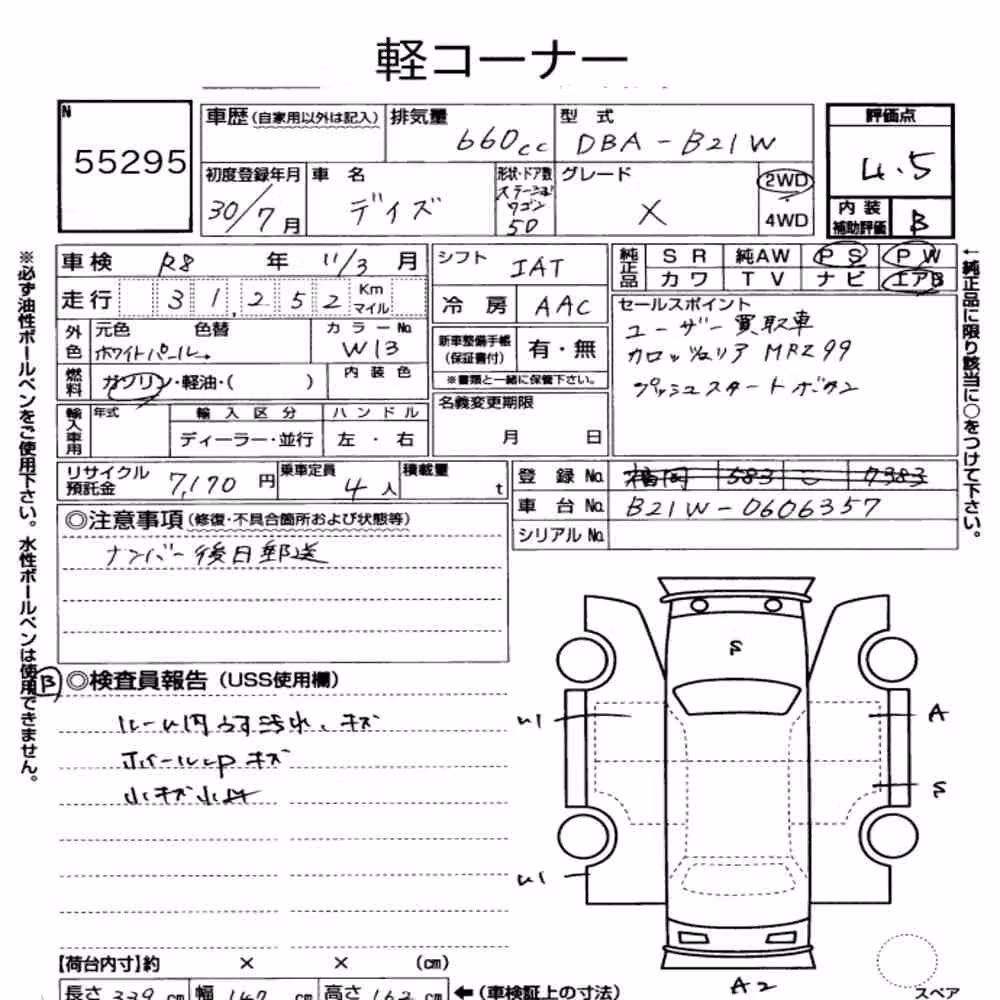 軽コーナー
N
55295
車歴(自家用以外は記入) 排気量 660cc 型式 DBA-B21W
評価点 4.5
初度登録年月 30/7月 車名 デイズ 形状・ドア数 ステーションワゴン 5D グレード X 2WD 4WD
内装補助評価 B
車検 R8年11/3月 シフト IAT
走行 31,252 Km マイル 冷房 AAC
純正品 SR 純AW PS PW
カワ TV ナビ エアB
外色 元色 色替 ホワイトパール カラーNo. W13
新車整備手帳(保証書付) 有・無
※書類と一緒に保管下さい。
セールスポイント
ユーザー買取車
カロッツェリア MRZ99
プッシュスタートボタン
燃料 ガソリン・軽油・( ) 内装色
名義変更期限 月 日
輸入車用 年式 輸入区分 ハンドル
ディーラー・並行 左・右
リサイクル預託金 7,170円 乗車定員 4人 積載量 t
登録No. 福岡 583 こ 7383
車台No. B21W-0606357
シリアルNo.
◎注意事項(修復・不具合箇所および状態等)
ナンバー後日郵送
B ◎検査員報告(USS使用欄)
ルーム内うす汚れ、キズ
ホイールcpキズ
小キズ小凹
S
A
S
A2
スペア
【荷台内寸】約 × × (cm)
長さ 339cm 幅 147cm 高さ 162cm ←(車検証上の寸法)
※必ず油性ボールペンをご使用下さい。水性ボールペンは使用できません。
←純正品に限り該当に○をつけて下さい。